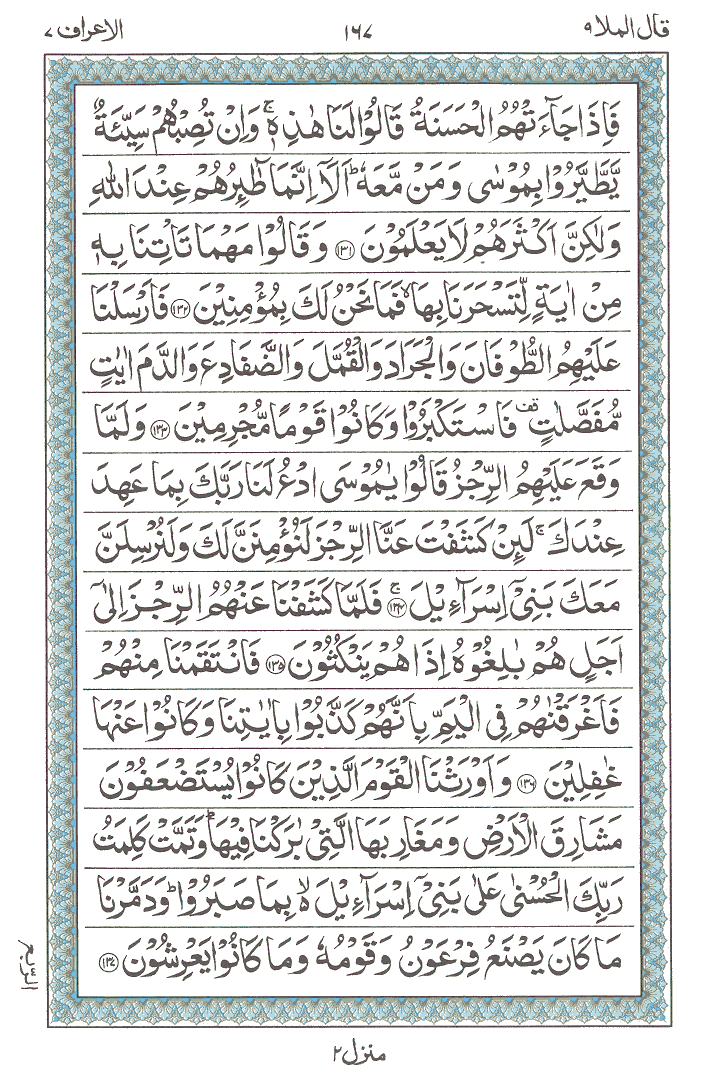 قَالَ الْمَلَاُ ٩ ١٦٧ الاعراف ٧
فَاِذَا جَآءَتْهُمُ الْحَسَنَةُ قَالُوْا لَنَا هٰذِهٖ ۚ وَاِنْ تُصِبْهُمْ سَيِّئَةٌ
يَّطَّيَّرُوْا بِمُوْسٰى وَمَنْ مَّعَهٗ ؕ اَلَاۤ اِنَّمَا طٰٓئِرُهُمْ عِنْدَ اللّٰهِ
وَلٰكِنَّ اَكْثَرَهُمْ لَا يَعْلَمُوْنَ ﴿۱۳۱﴾ وَقَالُوْا مَهْمَا تَاْتِنَا بِهٖ
مِنْ اٰيَةٍ لِّتَسْحَرَنَا بِهَا ۙ فَمَا نَحْنُ لَكَ بِمُؤْمِنِيْنَ ﴿۱۳۲﴾ فَاَرْسَلْنَا
عَلَيْهِمُ الطُّوْفَانَ وَالْجَرَادَ وَالْقُمَّلَ وَالضَّفَادِعَ وَالدَّمَ اٰيٰتٍ
مُّفَصَّلٰتٍ قف فَاسْتَكْبَرُوْا وَكَانُوْا قَوْمًا مُّجْرِمِيْنَ ﴿۱۳۳﴾ وَلَمَّا
وَقَعَ عَلَيْهِمُ الرِّجْزُ قَالُوْا يٰمُوْسَى ادْعُ لَنَا رَبَّكَ بِمَا عَهِدَ
عِنْدَكَ ۚ لَئِنْ كَشَفْتَ عَنَّا الرِّجْزَ لَنُؤْمِنَنَّ لَكَ وَلَنُرْسِلَنَّ
مَعَكَ بَنِيْۤ اِسْرَآءِيْلَ ﴿۱۳۴﴾ ۚ فَلَمَّا كَشَفْنَا عَنْهُمُ الرِّجْزَ اِلٰٓى
اَجَلٍ هُمْ بٰلِغُوْهُ اِذَا هُمْ يَنْكُثُوْنَ ﴿۱۳۵﴾ فَانْتَقَمْنَا مِنْهُمْ
فَاَغْرَقْنٰهُمْ فِى الْيَمِّ بِاَنَّهُمْ كَذَّبُوْا بِاٰيٰتِنَا وَكَانُوْا عَنْهَا
غٰفِلِيْنَ ﴿۱۳۶﴾ وَاَوْرَثْنَا الْقَوْمَ الَّذِيْنَ كَانُوْا يُسْتَضْعَفُوْنَ
مَشَارِقَ الْاَرْضِ وَمَغَارِبَهَا الَّتِيْ بٰرَكْنَا فِيْهَا ؕ وَتَمَّتْ كَلِمَتُ
رَبِّكَ الْحُسْنٰى عَلٰى بَنِيْۤ اِسْرَآءِيْلَ ۙ بِمَا صَبَرُوْا ؕ وَدَمَّرْنَا
مَا كَانَ يَصْنَعُ فِرْعَوْنُ وَقَوْمُهٗ وَمَا كَانُوْا يَعْرِشُوْنَ ﴿۱۳۷﴾
الربع
منزل ٢